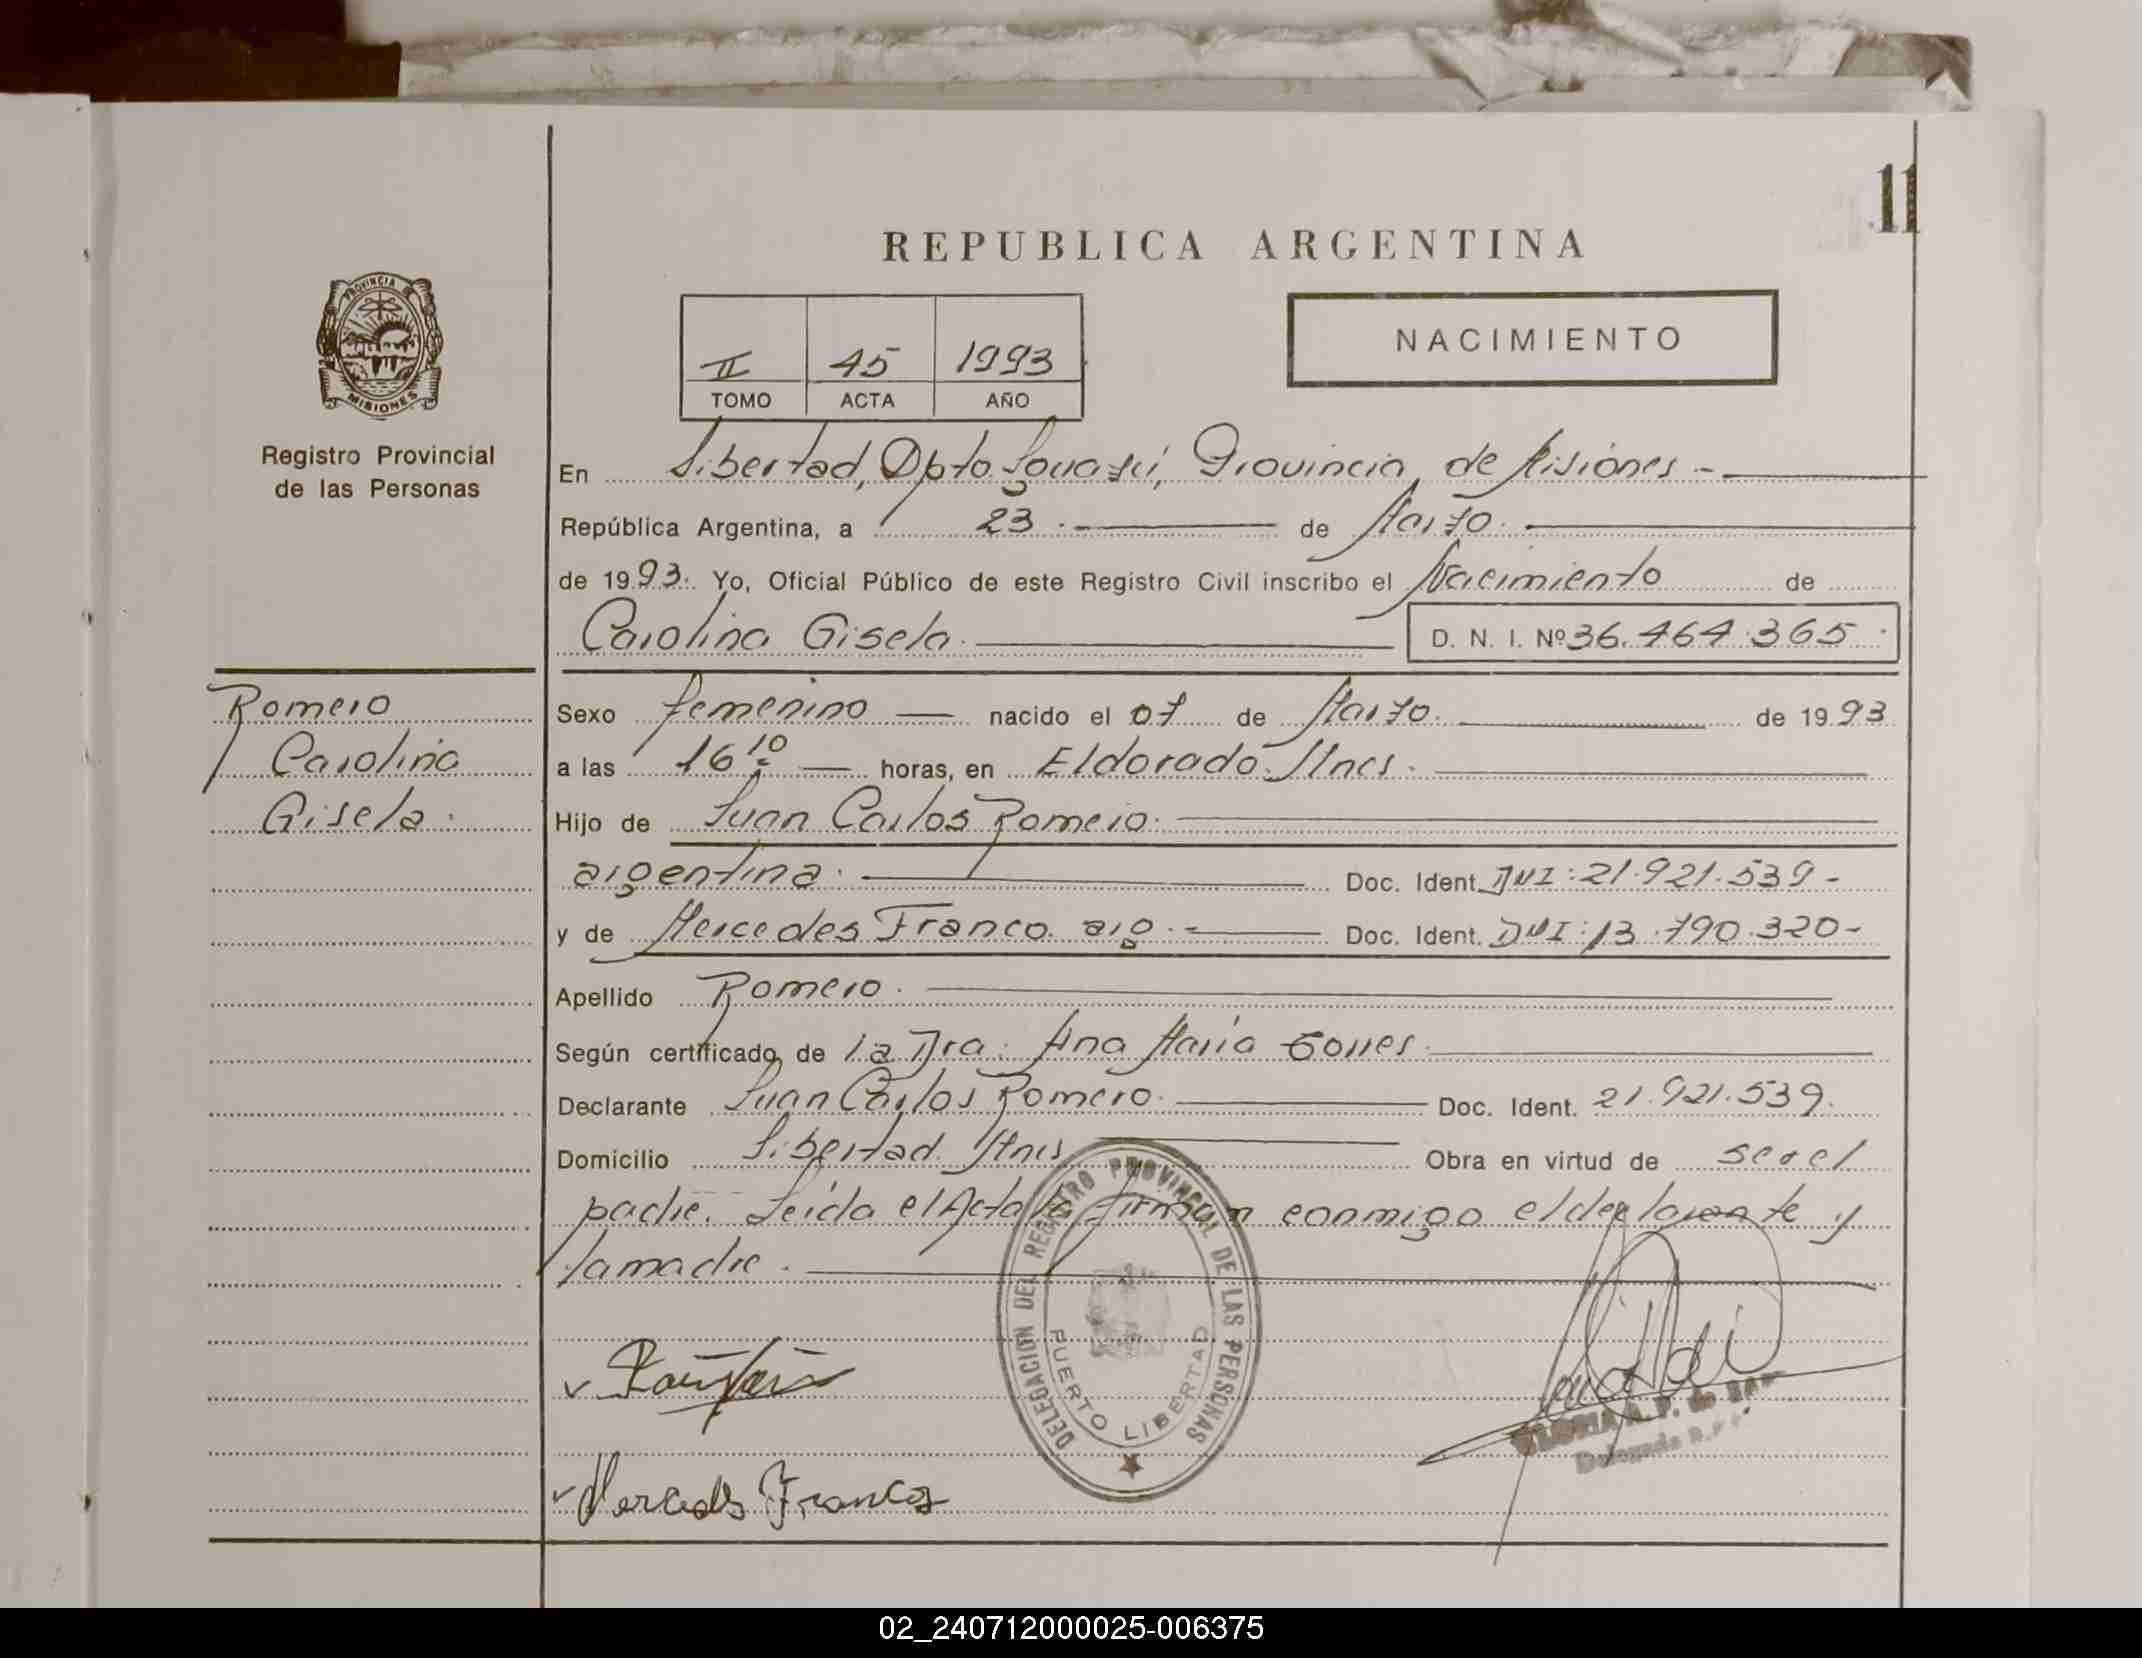 11
REPUBLICA ARGENTINA
PROVINCIA DE
MISIONES
Registro Provincial
de las Personas
II 45 1993
TOMO ACTA AÑO
NACIMIENTO
En Libertad, Dpto. Iguazú, Provincia de Misiones.-
República Argentina, a 23.- de Marzo.
de 1993. Yo, Oficial Público de este Registro Civil inscribo el Nacimiento de
Carolina Gisela. D. N. I. Nº 36.464.365.
Romero
Carolina
Gisela.
Sexo femenino nacido el 07 de Marzo. de 1993
a las 16 10 horas, en Eldorado. Mnes.
Hijo de Juan Carlos Romero.
argentina. Doc. Ident. DNI: 21.921.539-
y de Mercedes Franco. arg.- Doc. Ident. DNI: 13.790.320-
Apellido Romero.
Según certificado de la Dra. Ana María
Declarante Juan Carlos Romero. Doc. Ident. 21.921.539.
Domicilio Libertad. Mnes Obra en virtud de ser el
padre. Leída el Acta la firman conmigo el declarante y
la madre.
DELEGACION DEL REGISTRO PROVINCIAL DE LAS PERSONAS
PUERTO LIBERTAD
Mercedes Franco
02_240712000025-006375